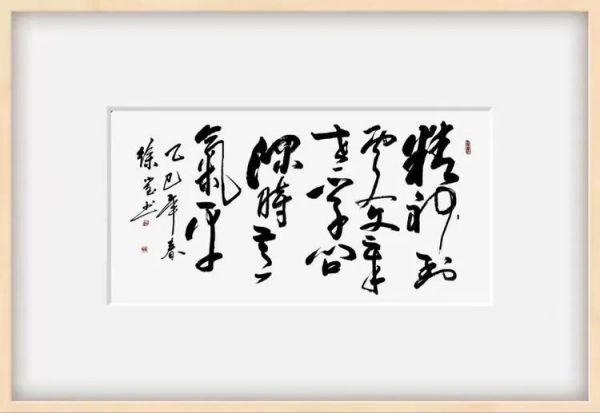 精神到
處文章
老學問
深時意
氣平
乙巳年春
徐书